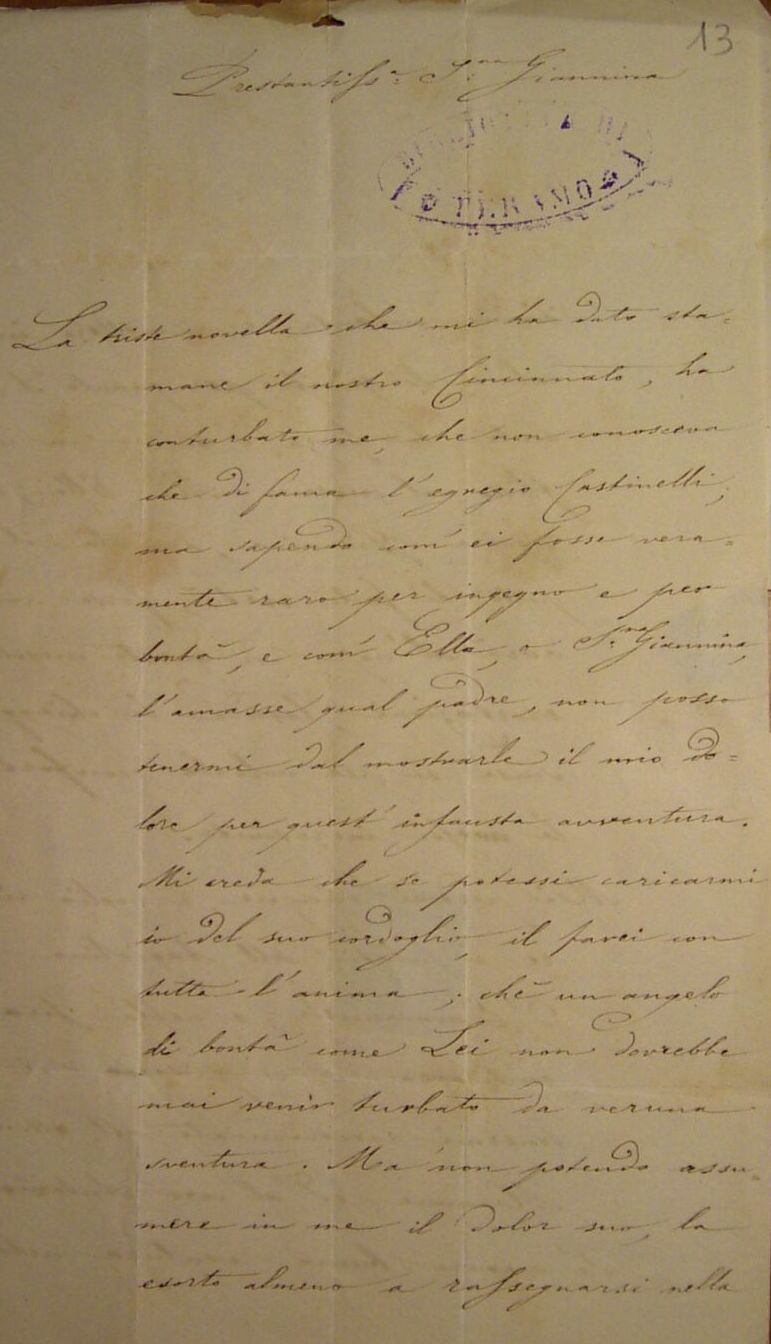 13
Prestantissa. S.ra Giannina
BIBLIOTECA DI
TERAMO
La triste novella che mi ha dato sta=
mane il nostro Cincinnato, ha
conturbato me, che non conosceva
che di fama l'egregio Castinelli;
ma sapendo com'ei fosse vera=
mente raro per ingegno e per
bontà, e com' Ella, o S.ra Giannina,
l'amasse qual padre, non posso
tenermi dal mostrarle il mio do=
lore per quest' infausta avventura.
Mi creda che se potessi caricarmi
io del suo cordoglio, il farei con
tutta l'anima; chè un angelo
di bontà come Lei non dovrebbe
mai venir turbato da veruna
sventura. Ma non potendo assu=
mere in me il dolor suo, la
esorto almeno a rassegnarsi nella